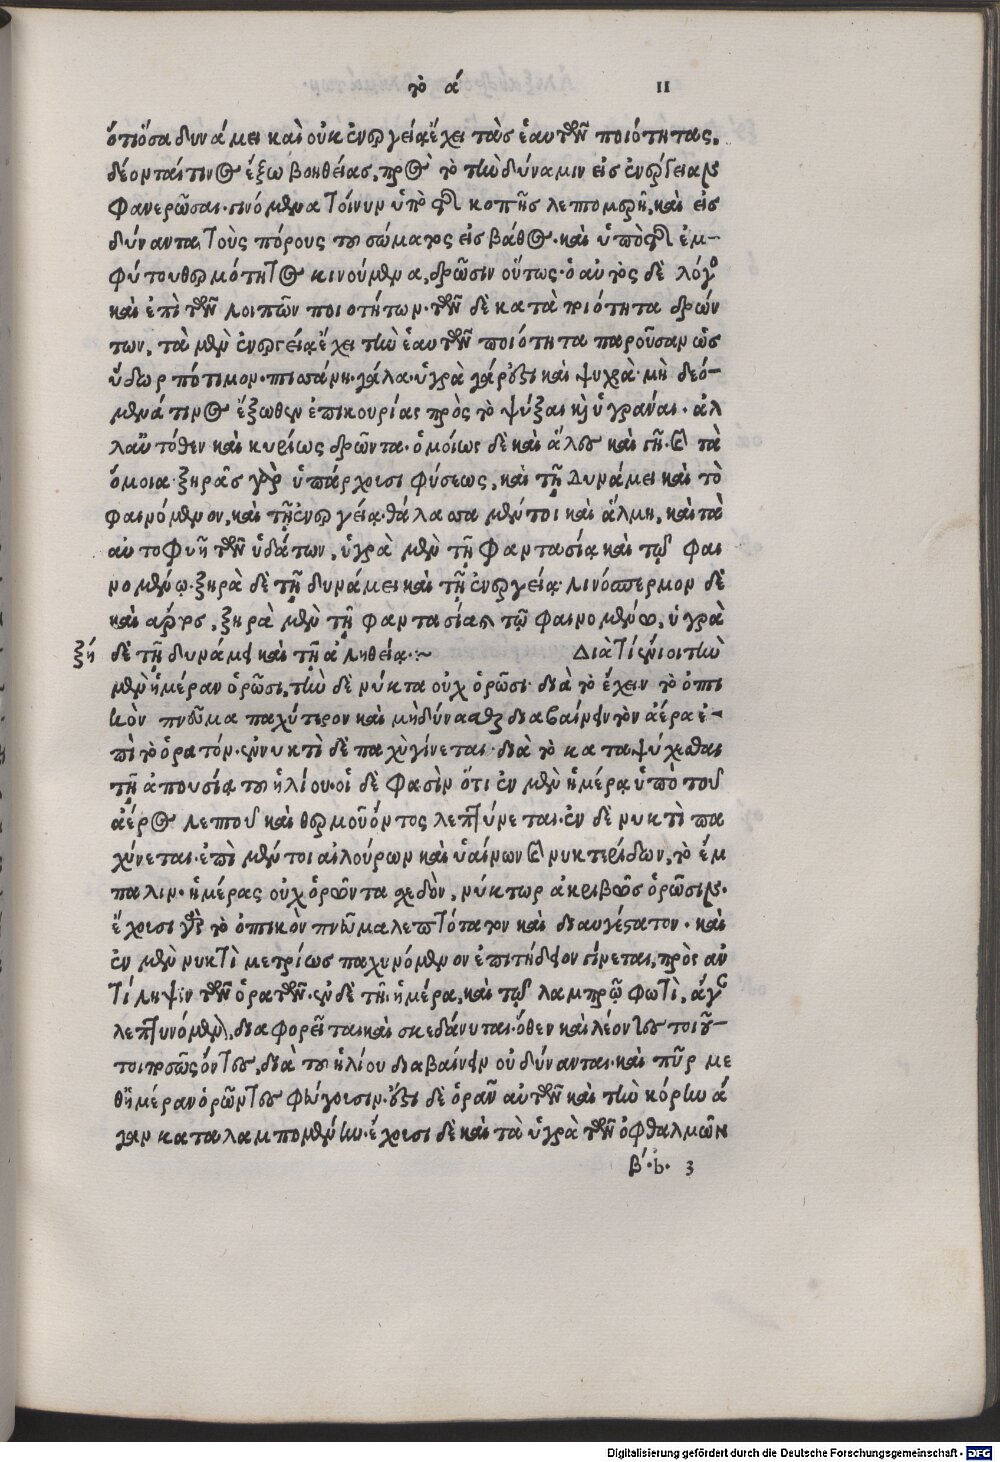 τὸ ά 11
ὅτι ὅσα δυνάμει καὶ οὐκ ἐνεργείᾳ ἔχει τὰς ἑαυτῶν ποιότητας,
δέονταί τινος ἔξω βοηθείας, πρὸς τὸ τὴν δύναμιν εἰς ἐνέργειαν
φανερῶσαι. γινόμενα τοίνυν ὑπὸ τῆς κοπῆς λεπτομερῆ, καὶ εἰσ
δύνανται τοὺς πόρους τοῦ σώματος εἰς βάθος. καὶ ὑπὸ τῆς ἐμ-
φύτου θερμότητος κινούμενα, δρῶσιν οὕτως. ὁ αὐτὸς δὲ λόγος
καὶ ἐπὶ τῶν λοιπῶν ποιοτήτων. τῶν δὲ κατὰ ποιότητα δρών
των, τὰ μὲν ἐνεργείᾳ ἔχει τὴν ἑαυτῶν ποιότητα παροῦσαν ὡς
ὕδωρ πότιμον. πτισάνη. γάλα. ὑγρὰ γάρ ἐστι καὶ ψυχρὰ. μὴ δεό-
μενά τινος ἔξωθεν ἐπικουρίας πρὸς τὸ ψύξαι καὶ ὑγρᾶναι. ἀλ
λ' αὐτόθεν καὶ κυρίως δρῶντα. ὁμοίως δὲ καὶ ἅλες καὶ γῆ. καὶ τὰ
ὅμοια. ξηρᾶς γὰρ ὑπάρχουσι φύσεως, καὶ τῇ δυνάμει καὶ τὸ
φαινόμενον, καὶ τῇ ἐνεργείᾳ. θάλασσα μέντοι καὶ ἅλμη, καὶ τὰ
αὐτοφυῆ τῶν ὑδάτων, ὑγρὰ μὲν τῇ φαντασίᾳ καὶ τῷ φαι
νομένῳ. ξηρὰ δὲ τῇ δυνάμει καὶ τῇ ἐνεργείᾳ. λινόσπερμον δὲ
καὶ ξηρὰ μὲν τῇ φαντασίᾳ τῷ φαινομένῳ, ὑγρὰ
ξή δὲ τῇ δυνάμει καὶ τῇ ἀληθείᾳ. Διὰ τί ἔνιοι τὴν
μὲν ἡμέραν ὁρῶσι, τὴν δὲ νύκτα οὐχ ὁρῶσι. διὰ τὸ ἔχειν τὸ ὀπτι
κὸν πνεῦμα παχύτερον καὶ μὴ δύνασθαι διαβαίνειν τὸν ἀέρα ἐ-
πὶ τὸ ὁρατόν. ἐν νυκτὶ δὲ παχὺ γίνεται. διὰ τὸ καταψύχεσθαι
τῇ ἀπουσίᾳ τοῦ ἡλίου. οἱ δὲ φασὶν ὅτι ἐν μὲν ἡμέρᾳ ὑπὸ τοῦ
ἀέρος λεπτοῦ καὶ θερμοῦ ὄντος λεπτύνεται. ἐν δὲ νυκτὶ πα
χύνεται. ἐπὶ μέντοι αἰλούρων καὶ ὑαίνων καὶ νυκτερίδων, τὸ ἔμ
παλιν. ἡμέρας οὐχ ὁρῶντα σχεδὸν, νύκτωρ ἀκριβῶς ὁρῶσιν.
ἔχουσι γὰρ τὸ ὀπτικὸν πνεῦμα λεπτότατον καὶ διαυγέστατον. καὶ
ἐν μὲν νυκτὶ μετρίως παχυνόμενον ἐπιτήδειον γίνεται, πρὸς ἀν
τίληψιν τῶν ὁρατῶν. ἐν δὲ τῇ ἡμέρᾳ, καὶ τῷ λαμπρῷ φωτὶ,
λεπτυνόμενον, διαφορεῖται καὶ σκεδάνυται. ὅθεν καὶ λέοντες τοιοῦ-
τοι πως ὄντες, διὰ τοῦ ἡλίου διαβαίνειν οὐ δύνανται. καὶ πῦρ με
θ' ἡμέραν ὁρῶντες φεύγουσιν. ἔστι δὲ ὁρᾶν αὐτῶν καὶ τὴν κόρην ἄ
γαν καταλαμπομένην. ἔχουσι δὲ καὶ τὰ ὑγρὰ τῶν ὀφθαλμῶν
β´. b. 3
Digitalisierung gefördert durch die Deutsche Forschungsgemeinschaft - DFG